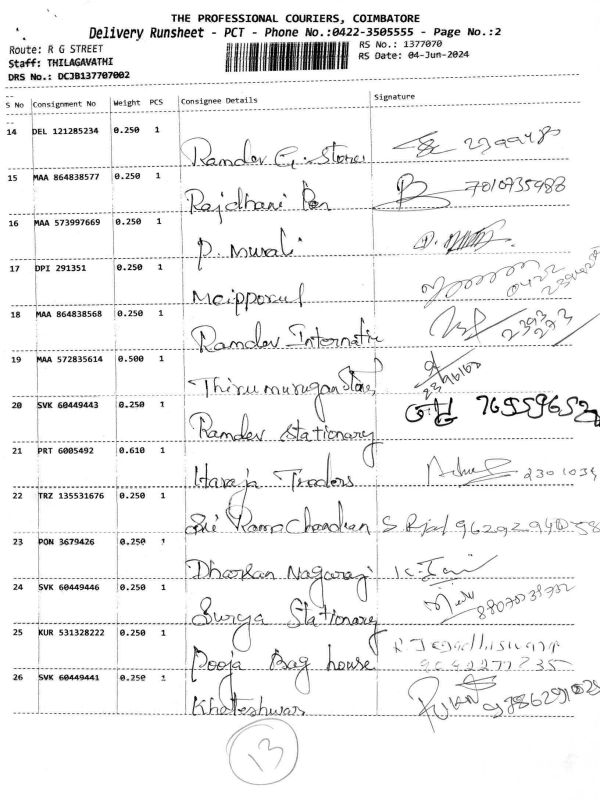 THE PROFESSIONAL COURIERS, COIMBATORE
Delivery Runsheet - PCT - Phone No.:0422-3505555 - Page No.:2
Route: R G STREET
RS No.: 1377070
Staff: THILAGAVATHI
RS Date: 04-Jun-2024
DRS No.: DCJB137707002
S No Consignment No Weight PCS Consignee Details Signature
14 DEL 121285234 0.250 1
Ramdev G. Store 2399483
15 MAA 864838577 0.250 1
Rajdhani Pen 7010735983
16 MAA 573997669 0.250 1
P. Murali
17 DPI 291351 0.250 1
Meipporul 0422
18 MAA 864838568 0.250 1
Ramdev 2393
273
19 MAA 572835614 0.500 1
Thirumurugan Stores 2396163
20 SVK 60449443 0.250 1
Ramdev Stationary
21 PRT 6005492 0.610 1
Haraja Traders 2301034
22 TRZ 135531676 0.250 1
Sri Rama Chandran
23 PON 3679426 0.250 1
Dharsan Nagaraj
24 SVK 60449446 0.250 1
Surya Stationary
25 KUR 531328222 0.250 1
Pooja Bag house
26 SVK 60449441 0.250 1
Khateshwar
13